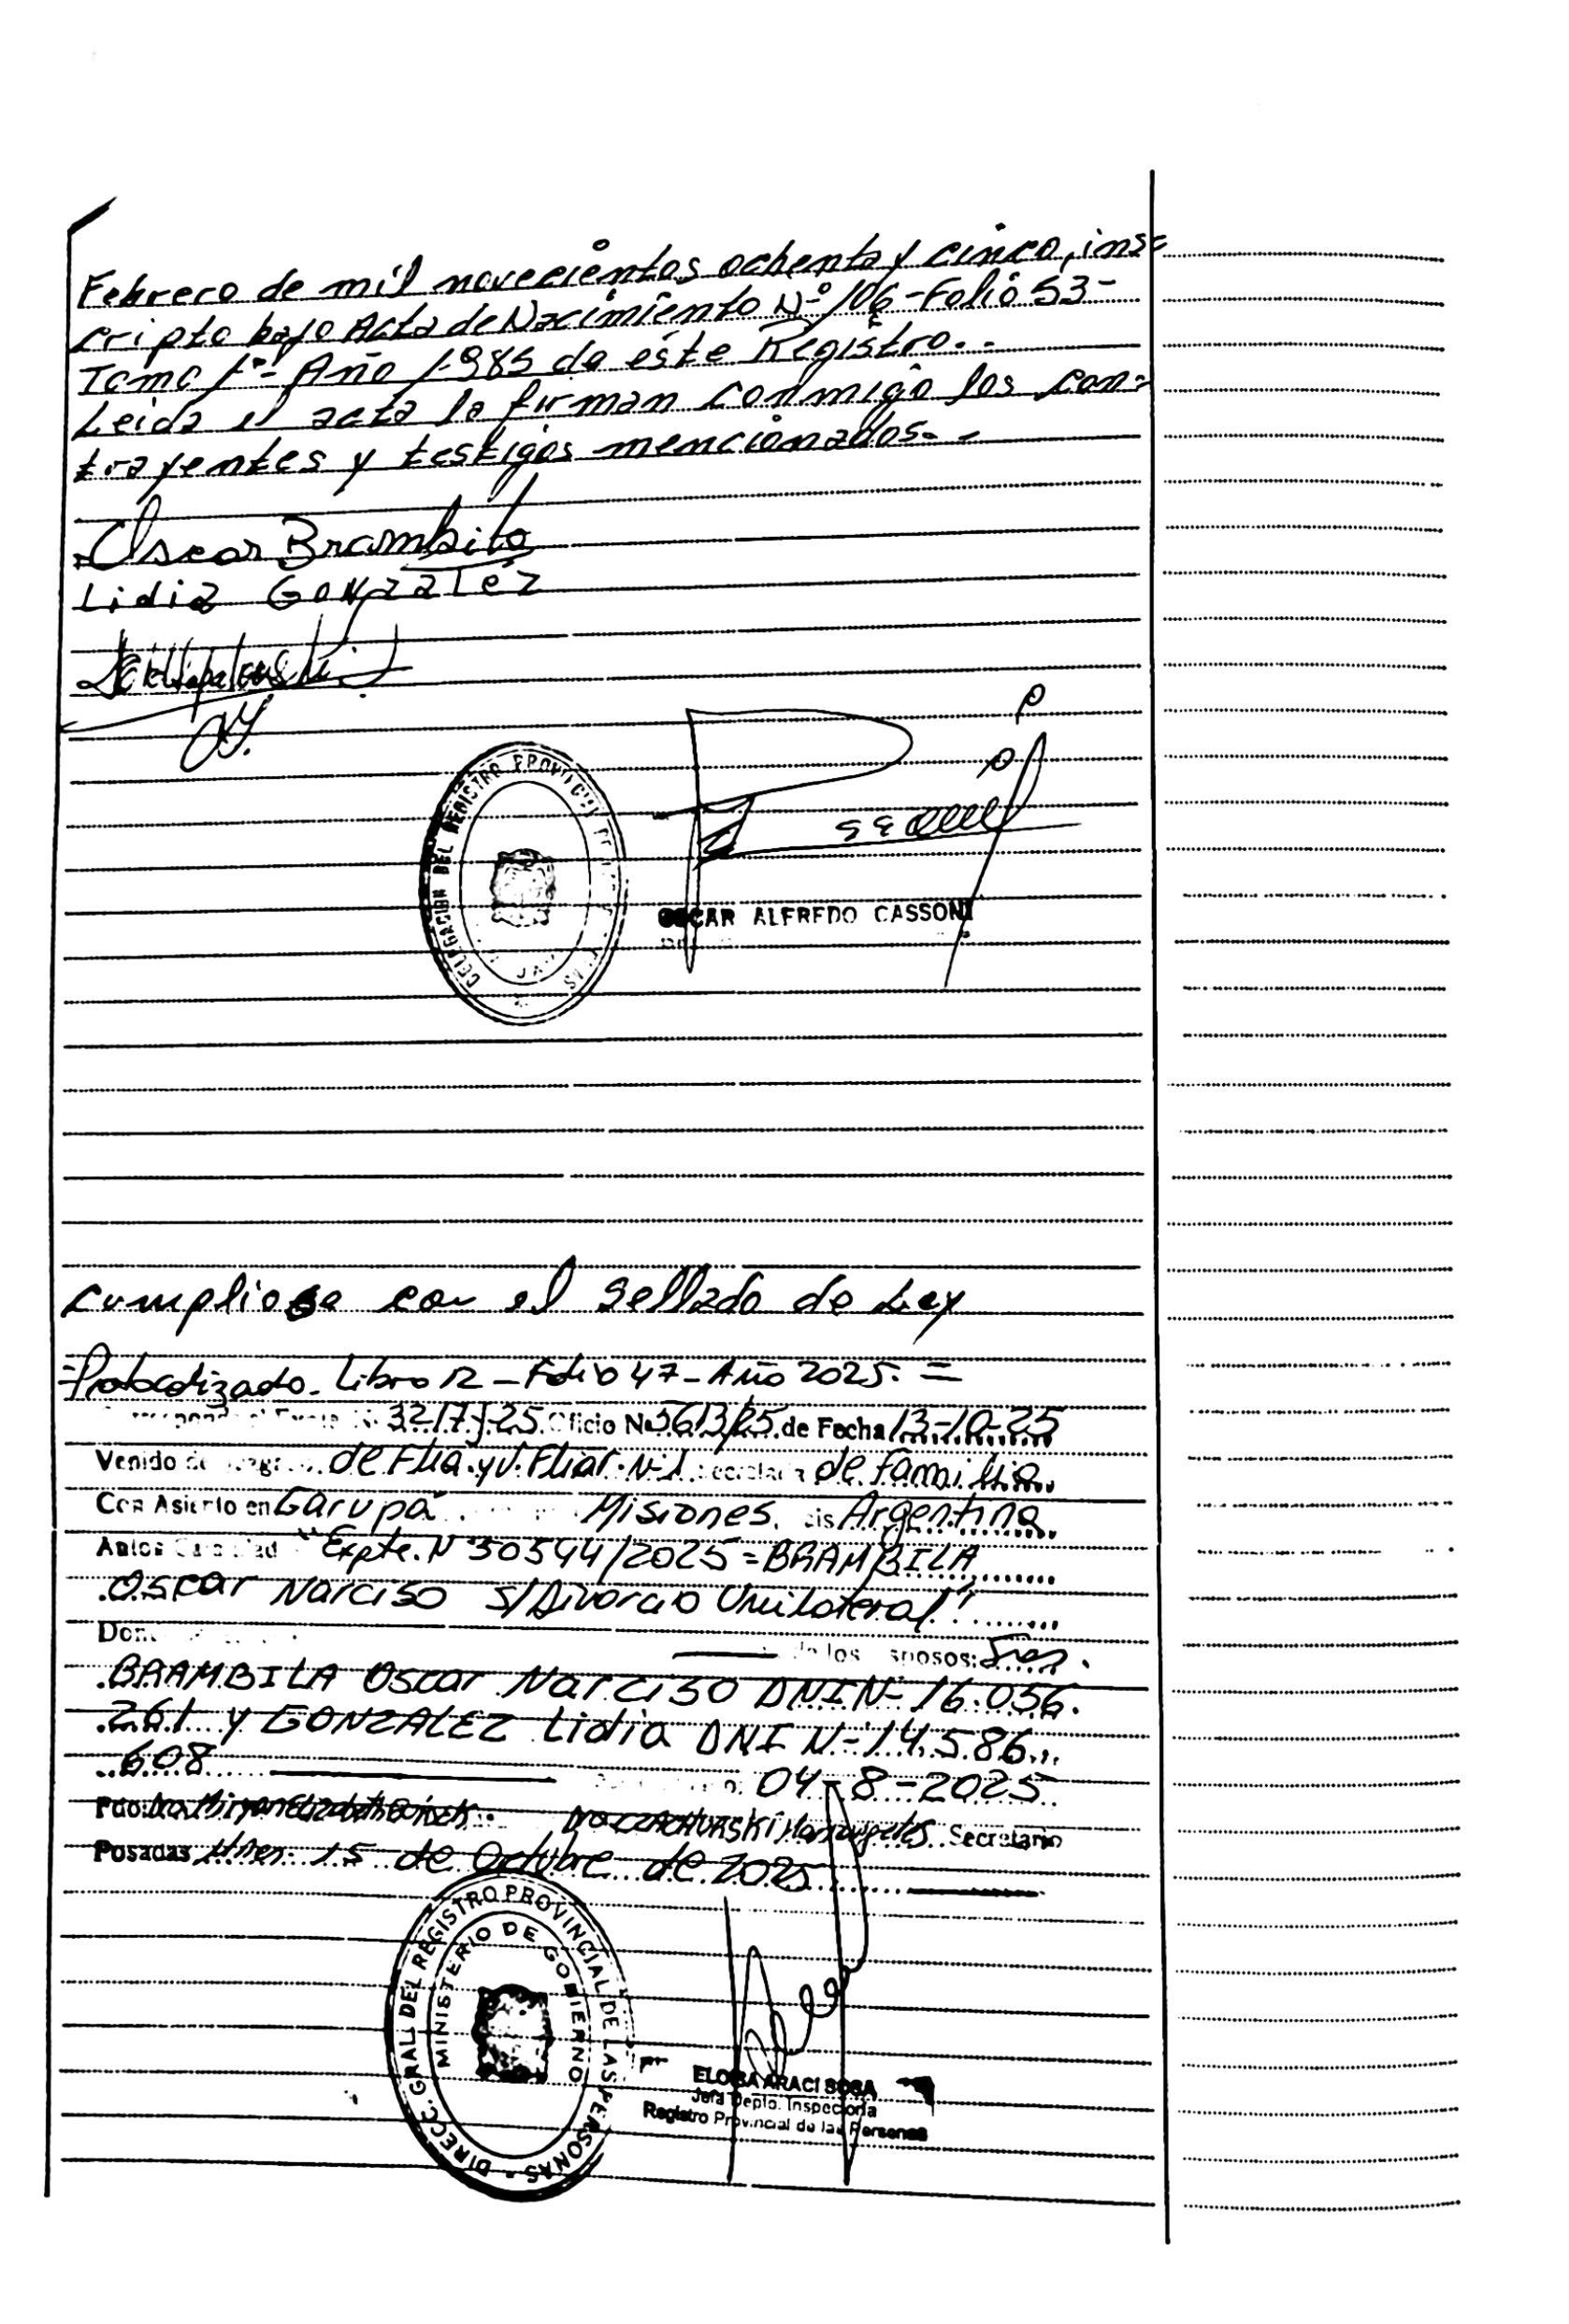 Febrero de mil novecientos ochenta y cinco, ins-
cripto bajo Acta de Nacimiento Nº 106 - Folio 53 -
Tomo 1º - Año 1.985 de éste Registro. -
Leida el acta la firman conmigo los con-
trayentes y testigos mencionados. -
Oscar Brambila
Lidia Gonzalez
DELEGACION DEL REGISTRO PROVINCIAL
OSCAR ALFREDO CASSONI
Cumpliose con el Sellado de Ley
=Protocolizado - Libro 12 - Folio 47 - Año 2025. =
3217-J-25 Oficio Nº 5613/25 de Fecha 13-10-25
Venido de de Flia. y V. Fliar. Nº 1 Secretaria de familia
Con Asiento en Garupá Misiones. Argentina
Autos Caratulad "Expte. Nº 30544/2025 = BRAMBILA
Oscar Narciso S/Divorcio Unilateral"
de los esposos: Sres.
BRAMBILA Oscar Narciso DNI Nº 16.056.
261 y GONZALEZ Lidia DNI Nº 14.586.
608 04-8-2025
Fdo: Dra. Secretario
Posadas, Mnes. 15 de Octubre de 2025
DIRECC. GRAL. DEL REGISTRO PROVINCIAL DE LAS PERSONAS
MINISTERIO DE GOBIERNO
ELOISA ARACI SOSA
Jefa Depto. Inspectoria
Registro Provincial de las Personas